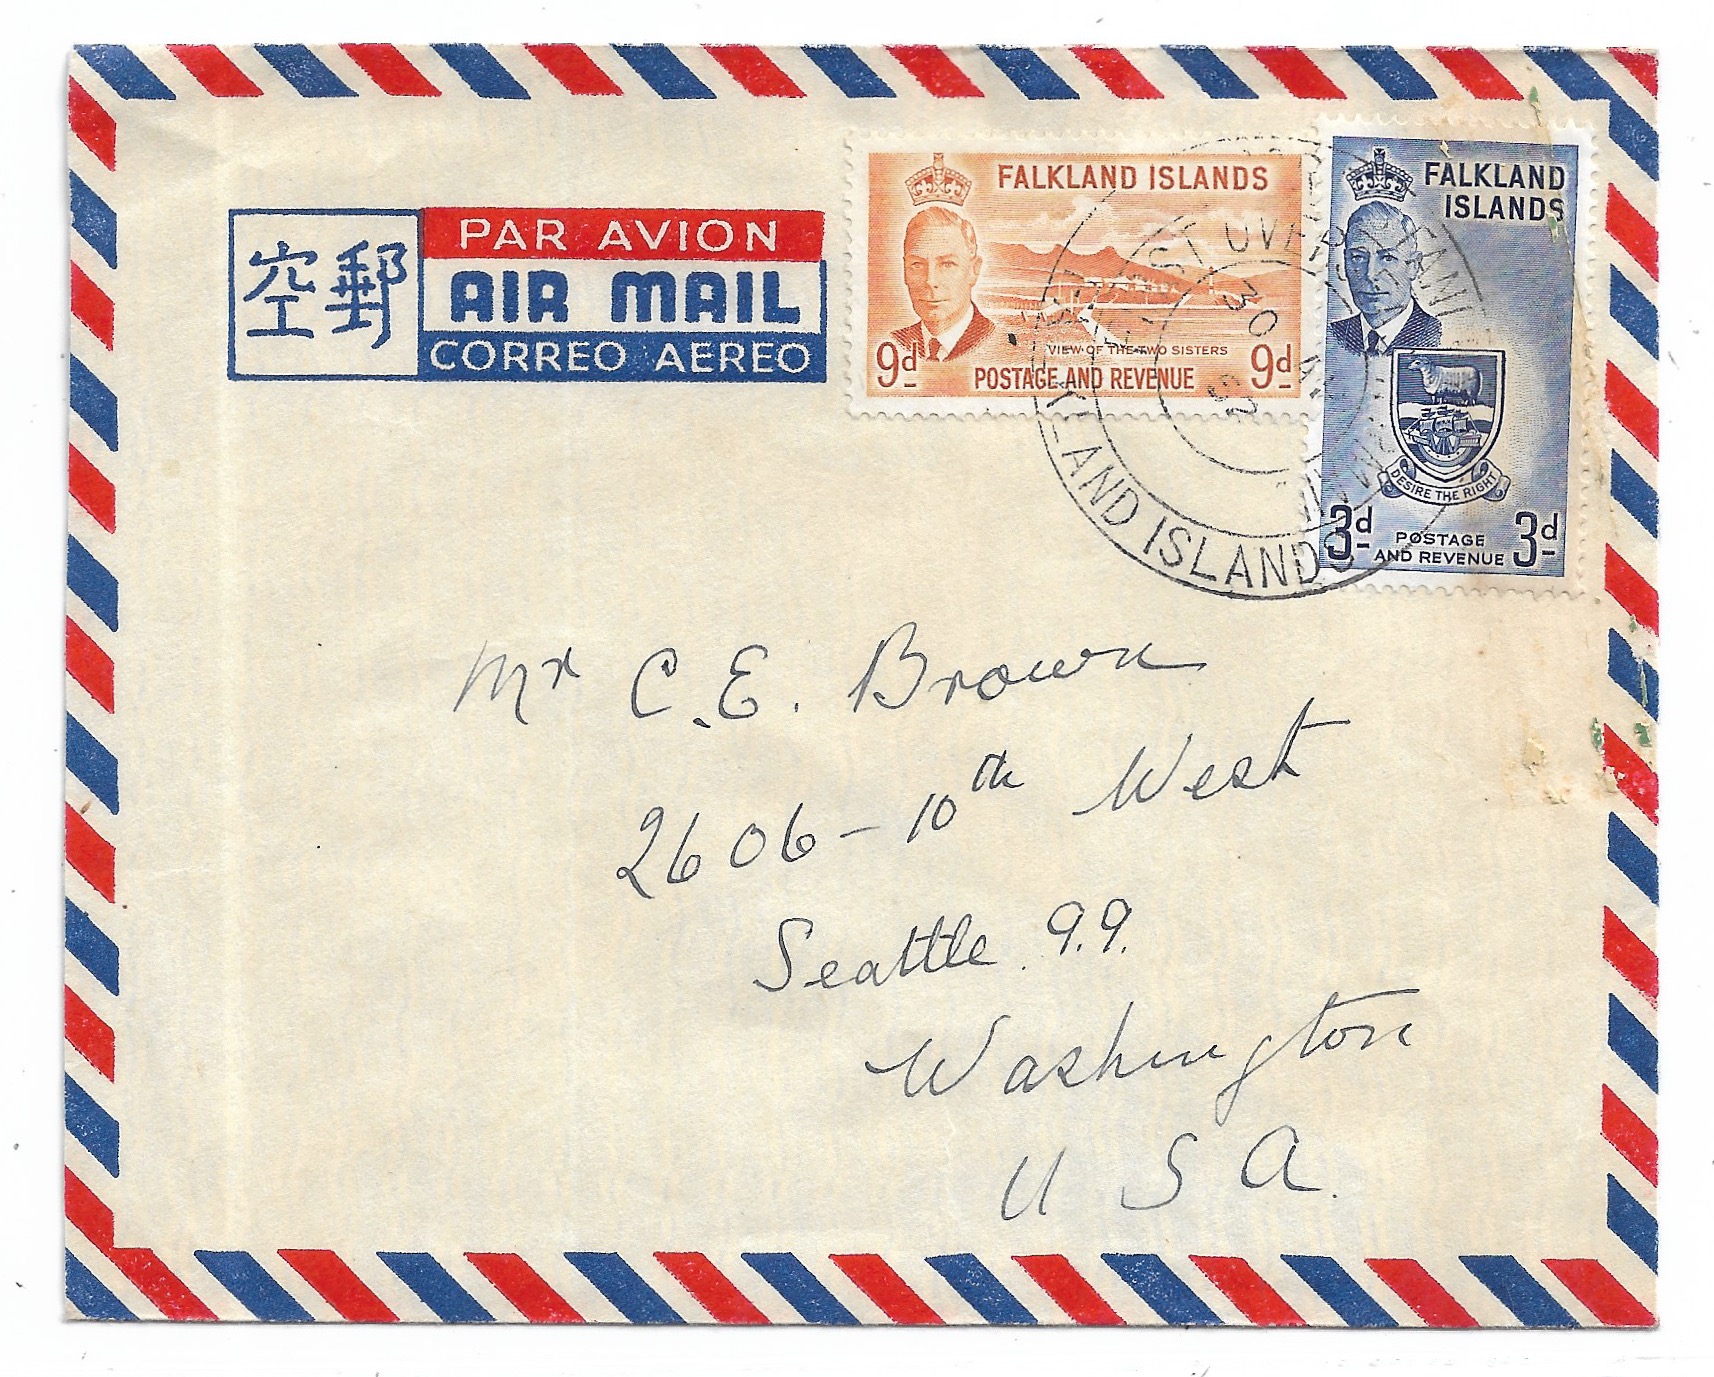 空郵
PAR AVION
AIR MAIL
CORREO AEREO
FALKLAND ISLANDS
9d
VIEW OF THE TWO SISTERS
POSTAGE AND REVENUE
9d
FALKLAND
ISLANDS
DESIRE THE RIGHT
3d
POSTAGE
AND REVENUE
3d
30
52
ISLANDS
Mr C.E. Brown
2606-10th West
Seattle 99.
Washington
U S A.